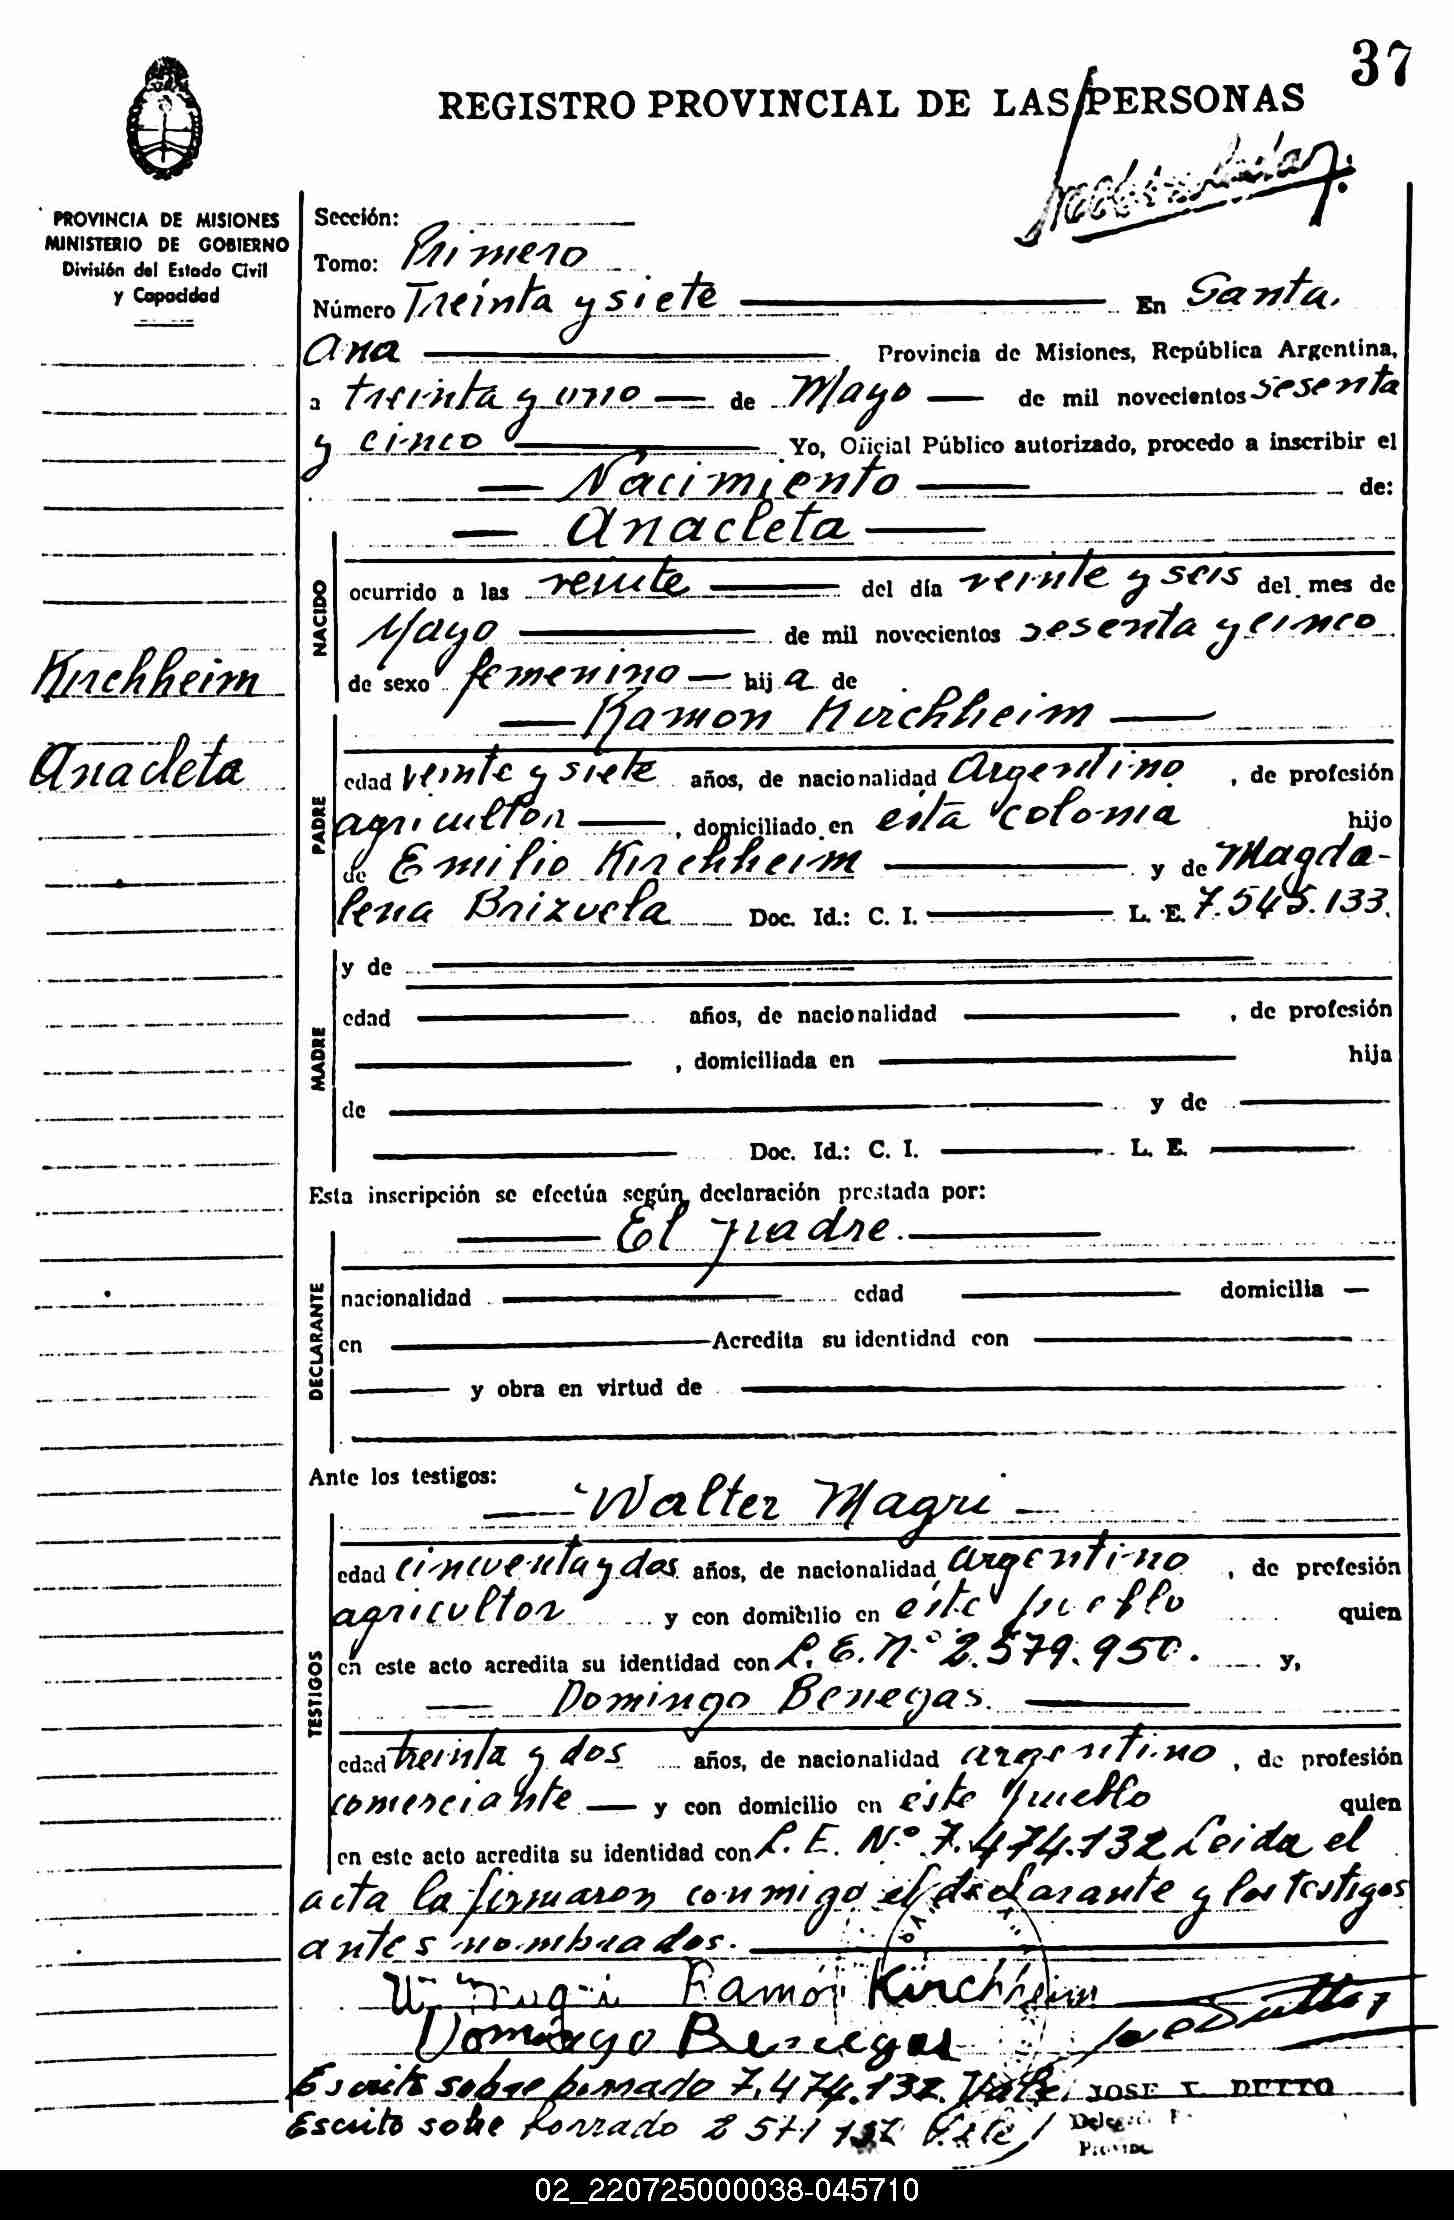 37
REGISTRO PROVINCIAL DE LAS PERSONAS
PROVINCIA DE MISIONES
MINISTERIO DE GOBIERNO
División del Estado Civil
y Capacidad
Kirchheim
Anacleta
Sección:
Tomo: Primero
Número Treinta y siete En Santa
Ana Provincia de Misiones, República Argentina,
a treinta y uno de Mayo de mil novecientos sesenta
y cinco Yo, Oficial Público autorizado, procedo a inscribir el
Nacimiento de:
Anacleta
NACIDO
ocurrido a las veinte del día veinte y seis del mes de
Mayo de mil novecientos sesenta y cinco
de sexo femenino hija de
Ramon Kirchheim
PADRE
edad veinte y siete años, de nacionalidad Argentino, de profesión
agricultor, domiciliado en esta colonia hijo
de Emilio Kirchheim y de Magda-
lena Brizuela Doc. Id.: C. I. L. E. 7.545.133.
MADRE
y de
edad años, de nacionalidad , de profesión
, domiciliada en hija
de y de
Doc. Id.: C. I. L. E.
Esta inscripción se efectúa según declaración prestada por:
El padre.
DECLARANTE
nacionalidad edad domicilia
en Acredita su identidad con
y obra en virtud de
Ante los testigos:
Walter Magri
TESTIGOS
edad cincuenta y dos años, de nacionalidad argentino, de profesión
agricultor y con domicilio en éste pueblo quien
en este acto acredita su identidad con L. E. Nº 2.579.950. y,
Domingo Benegas.
edad treinta y dos años, de nacionalidad argentino, de profesión
comerciante y con domicilio en éste pueblo quien
en este acto acredita su identidad con L. E. Nº 7.474.132 Leida el
acta la firmaron conmigo el declarante y los testigos
antes nombrados.
Ramón Kirchheim
Domingo Benegas
Escrito sobre borrado 7.474.132. Vale
JOSE DUTTO
Escrito sobre borrado Vale
02_220725000038-045710